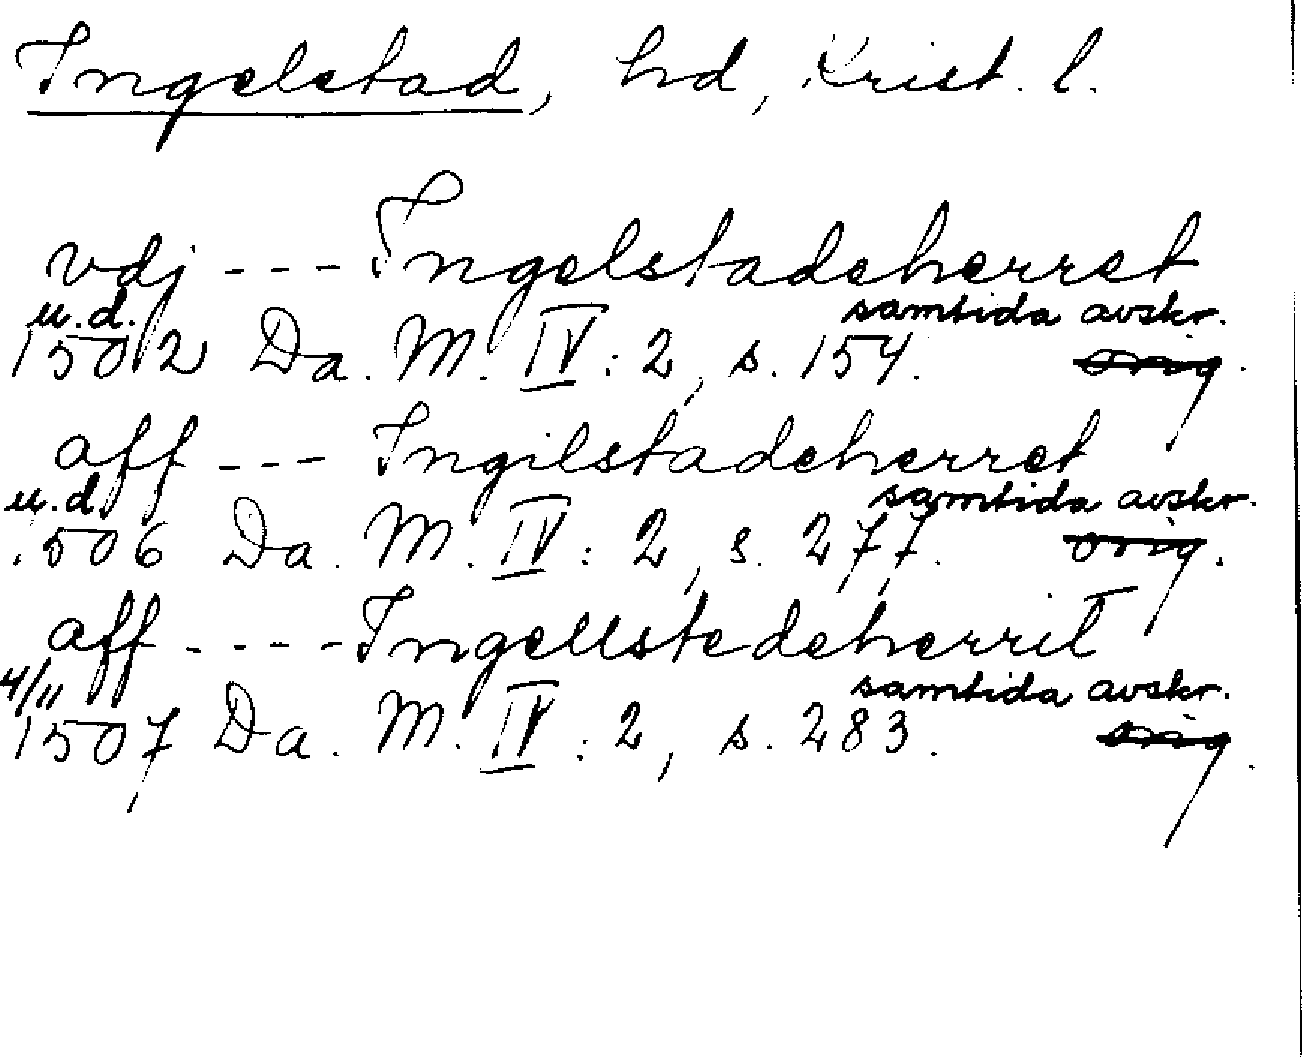 Ingelstad, hd, Krist. l.
vdj --- Ingelstadeherret
u.d. samtida avskr.
1502 Da. M. IV: 2, s. 154. orig.
aff --- Ingilstadeherret
u.d. samtida avskr.
1506 Da. M. IV: 2, s. 277. orig.
aff ---- Ingellstedeherrit
4/11 samtida avskr.
1507 Da. M. IV: 2, s. 283. orig.